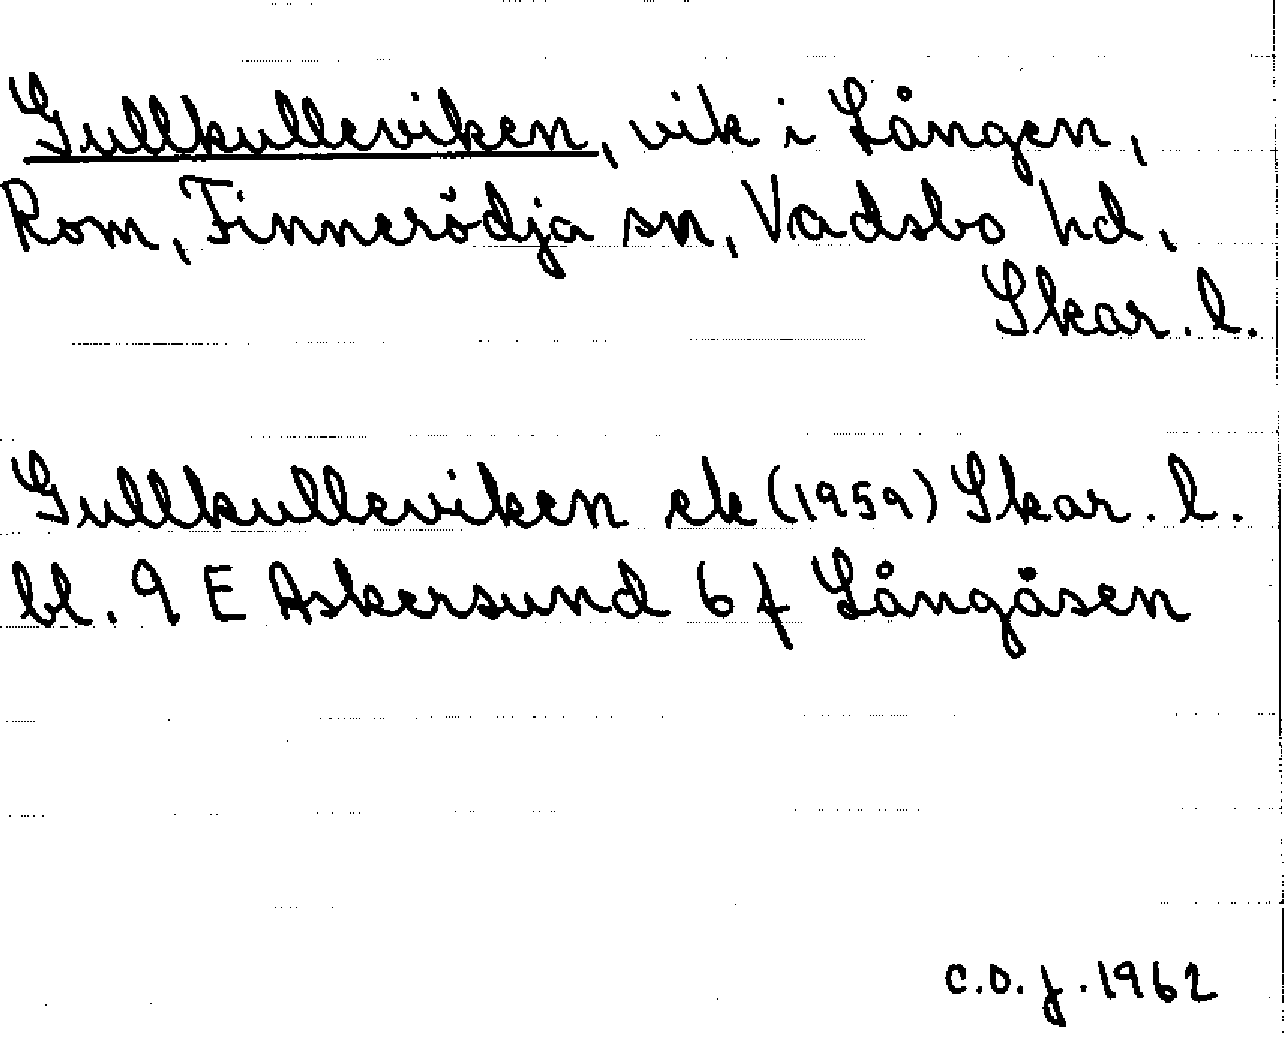 Gullkulleviken, vik i Lången,
Rom, Finnerödja sn, Vadsbo hd,
Skar. l.
Gullkulleviken ek (1959) Skar. l.
bl. 9 E Askersund 6 f Långåsen
C.O.J. 1962